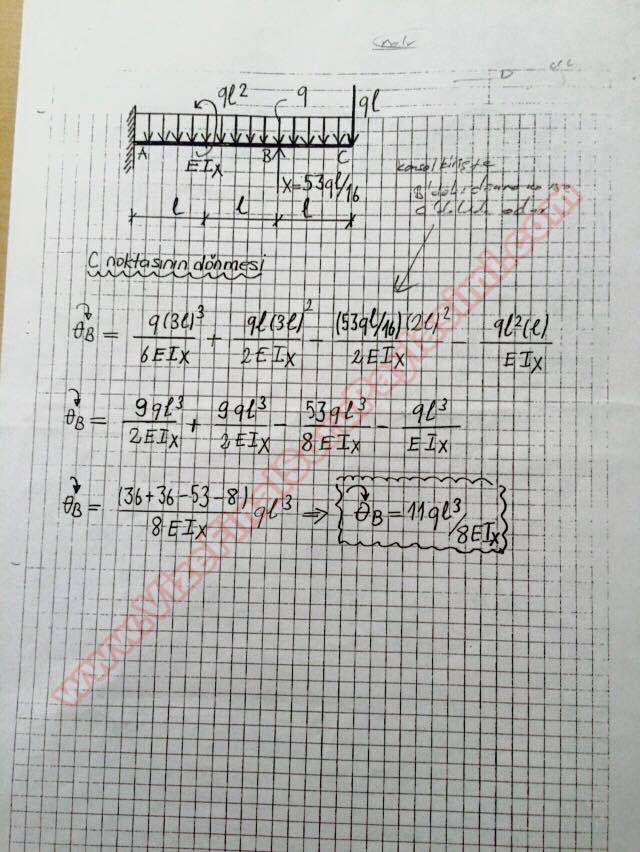 ql² q ql
A EIx B C
x=53ql/16
l l l
C noktasının dönmesi
θB = q(3l)³/6EIx + ql(3l)²/2EIx - (53ql/16)(2l)²/2EIx - ql²(l)/EIx
θB = 9ql³/2EIx + 9ql³/2EIx - 53ql³/8EIx - ql³/EIx
θB = (36+36-53-8)/8EIx ql³ ⇒ θB = 11ql³/8EIx
www.VizeFinalSoruPaylasimi.com